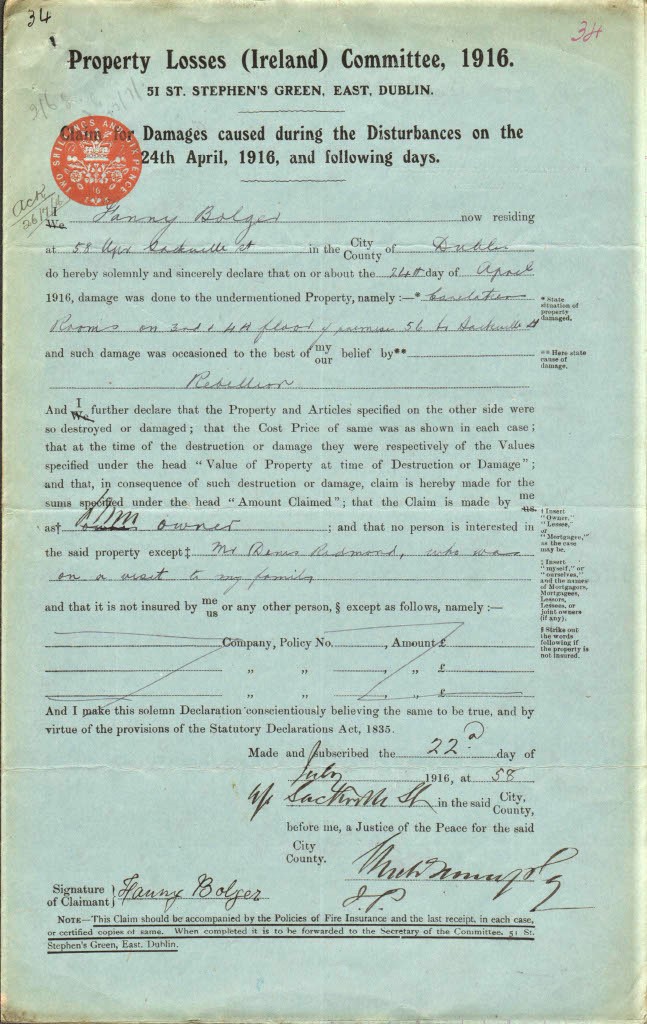 34
34
Property Losses (Ireland) Committee, 1916.
51 ST. STEPHEN'S GREEN, EAST, DUBLIN.
Claim for Damages caused during the Disturbances on the
24th April, 1916, and following days.
TWO SHILLINGS AND SIX PENCE
Ack
26/7/16
I
We Fanny Bolger now residing
at 58 Upr Sackville St in the City County of Dublin
do hereby solemnly and sincerely declare that on or about the 24th day of April
1916, damage was done to the undermentioned Property, namely :—*
Rooms on 3rd & 4th floor of premises 56 Sackville St
* State situation of property damaged.
and such damage was occasioned to the best of my our belief by**
** Here state cause of damage.
Rebellion
And I We further declare that the Property and Articles specified on the other side were
so destroyed or damaged ; that the Cost Price of same was as shown in each case ;
that at the time of the destruction or damage they were respectively of the Values
specified under the head "Value of Property at time of Destruction or Damage" ;
and that, in consequence of such destruction or damage, claim is hereby made for the
sums specified under the head "Amount Claimed" ; that the Claim is made by me us
as† owner ; and that no person is interested in
† Insert "Owner," "Lessee," or "Mortgagee," as the case may be.
the said property except‡ Mr Denis Redmond, who was
on a visit to my family
‡ Insert "myself," or "ourselves," and the names of Mortgagors, Mortgagees, Lessors, Lessees, or joint owners (if any).
and that it is not insured by me us or any other person, § except as follows, namely :—
§ Strike out the words following if the property is not insured.
Company, Policy No. , Amount £
" " , " £
" " , " £
And I make this solemn Declaration conscientiously believing the same to be true, and by
virtue of the provisions of the Statutory Declarations Act, 1835.
Made and subscribed the 22d day of
July 1916, at 58
Up Sackville St in the said City, County,
before me, a Justice of the Peace for the said
City
County.
J.P.
Signature of Claimant } Fanny Bolger
NOTE—This Claim should be accompanied by the Policies of Fire Insurance and the last receipt, in each case,
or certified copies of same. When completed it is to be forwarded to the Secretary of the Committee, 51 St.
Stephen's Green, East, Dublin.